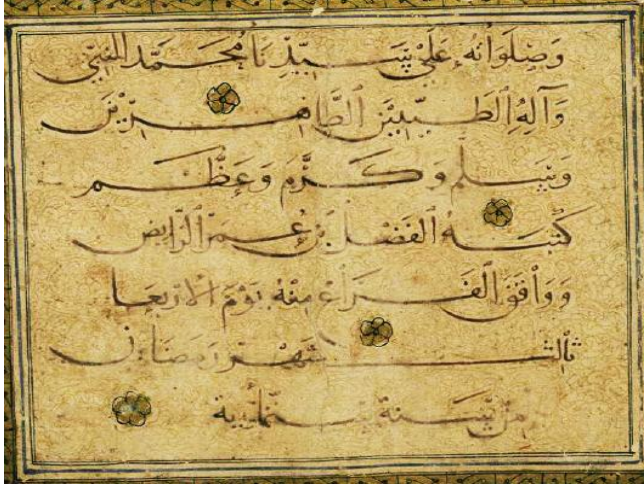 وَصَلَوَاتُهُ عَلَى سَيِّدِنَا مُحَمَّد النَّبِيِّ
وَآلِهِ ٱلطَّيِّبِيْنَ ٱلطَّاهِرِيْنَ
وَسَلَّمَ وَكَرَّمَ وَعَظَّمَ
كَتَبَهُ ٱلفَضْلُ بْنُ عُمَرَ ٱلرَّايض
وَوَافَقَ ٱلفَرَاغ مِنْهُ يَوْمَ الْارْبِعَا
ثالث شَهْر رَمَضَان
مِنْ سَنَة سِتّمائية